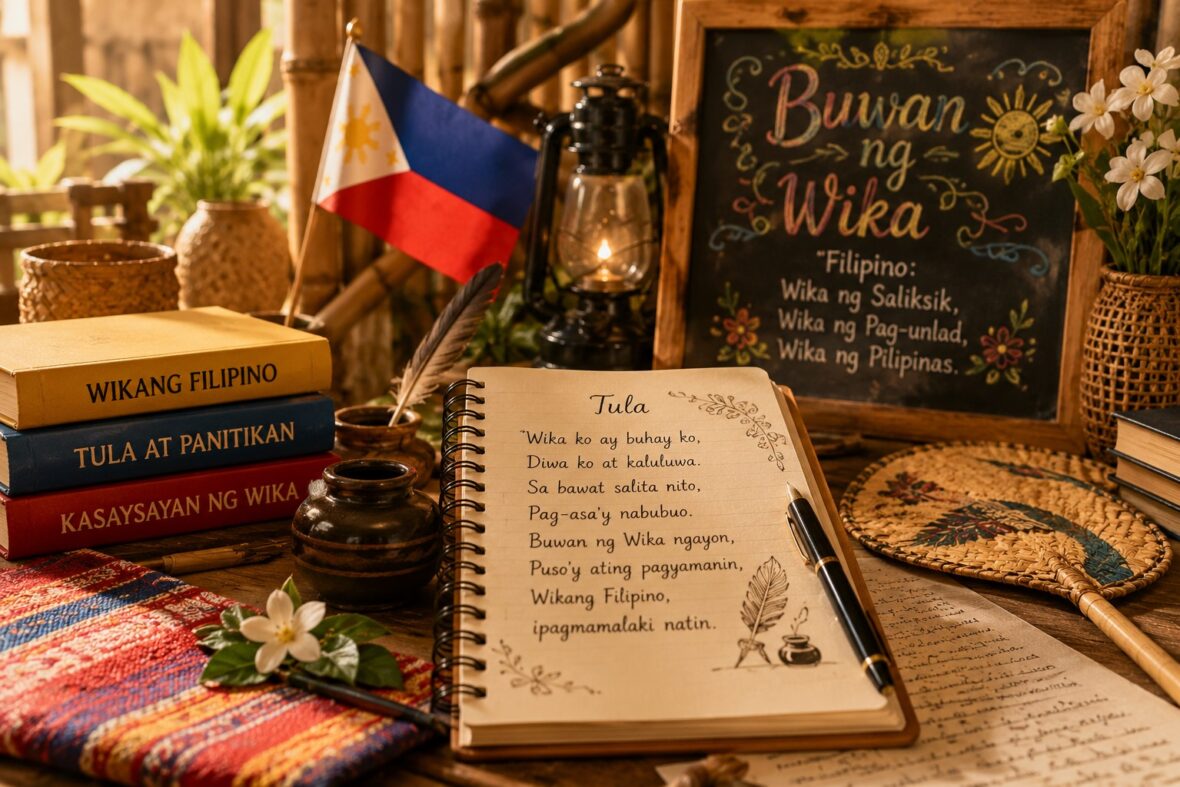 Buwan
ng
Wika
"Filipino:
Wika ng Saliksik,
Wika ng Pag-unlad,
Wika ng Pilipinas.
WIKANG FILIPINO
TULA AT PANITIKAN
KASAYSAYAN NG WIKA
Tula
"Wika ko ay buhay ko,
Diwa ko at kaluluwa.
Sa bawat salita nito,
Pag-asa'y nabubuo.
Buwan ng Wika ngayon,
Puso'y ating pagyamanin,
Wikang Filipino,
ipagmamalaki natin.